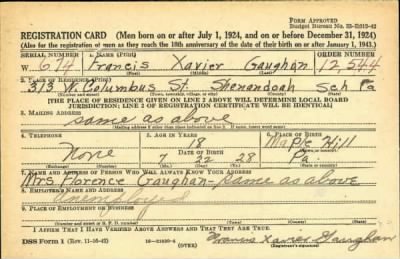 FORM APPROVED
Budget Bureau No. 33-R019-42
REGISTRATION CARD (Men born on or after July 1, 1924, and on or before December 31, 1924)
(Also for the registration of men as they reach the 18th anniversary of the date of their birth on or after January 1, 1943.)
SERIAL NUMBER 1. NAME (Print) ORDER NUMBER
W 674 Francis Xavier Gaughan 12544
(First) (Middle) (Last)
2. PLACE OF RESIDENCE (Print)
313 W. Columbus St. Shenandoah Sch Pa
(Number and street) (Town, township, village, or city) (County) (State)
[THE PLACE OF RESIDENCE GIVEN ON LINE 2 ABOVE WILL DETERMINE LOCAL BOARD
JURISDICTION; LINE 2 OF REGISTRATION CERTIFICATE WILL BE IDENTICAL]
3. MAILING ADDRESS
same as above
(Mailing address if other than place indicated on line 2. If same, insert word same)
4. TELEPHONE 5. AGE IN YEARS 6. PLACE OF BIRTH
18 Maple Hill
None DATE OF BIRTH (Town or county)
7 22 28 Pa.
(Exchange) (Number) (Mo.) (Day) (Yr.) (State or country)
7. NAME AND ADDRESS OF PERSON WHO WILL ALWAYS KNOW YOUR ADDRESS
Mrs Florence Gaughan same as above
8. EMPLOYER'S NAME AND ADDRESS
Unemployed
9. PLACE OF EMPLOYMENT OR BUSINESS
(Number and street or R. F. D. number) (Town) (County) (State)
I AFFIRM THAT I HAVE VERIFIED ABOVE ANSWERS AND THAT THEY ARE TRUE.
DSS Form 1 (Rev. 11-16-42) (OVER) Francis Xavier Gaughan
(Registrant's signature)